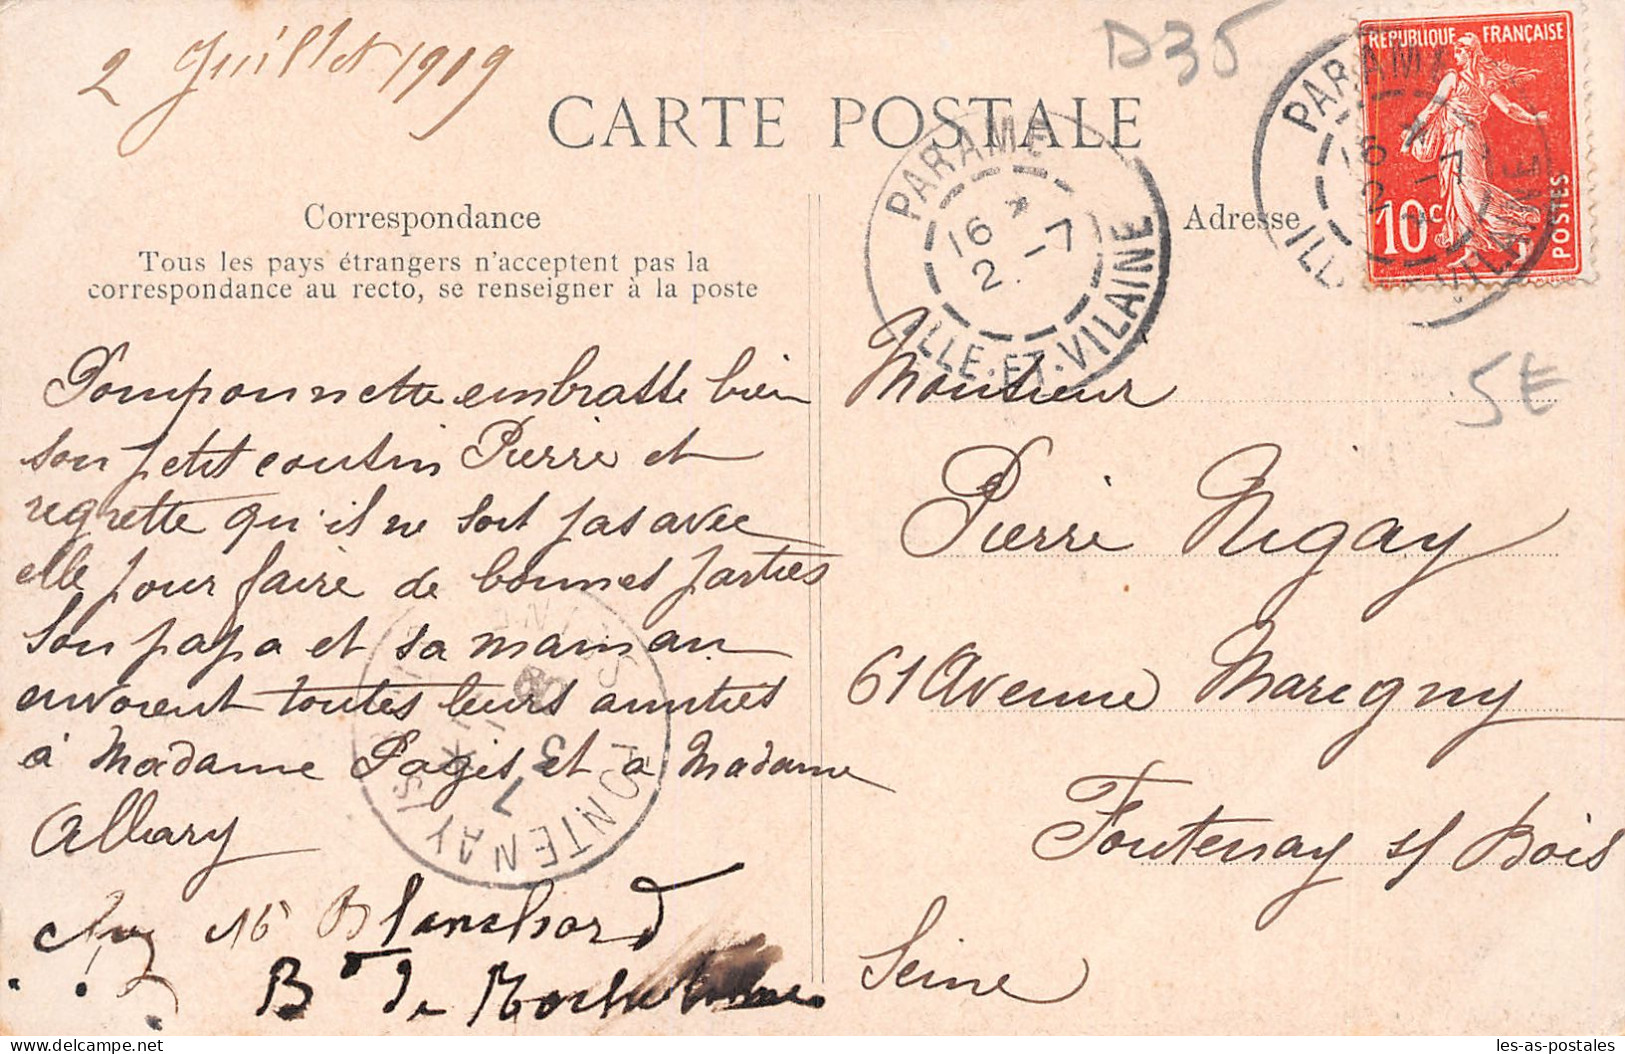 2 Juillet 1909
D35
CARTE POSTALE
RÉPUBLIQUE FRANÇAISE
10c
POSTES
PARAMÉ
16 *
2 -7
ILLE-ET-VILAINE
PARAMÉ
16 *
2 -7
ILLE-ET-VILAINE
Correspondance
Tous les pays étrangers n'acceptent pas la
correspondance au recto, se renseigner à la poste
Pomponnette embrasse bien
son petit cousin Pierre et
regrette qu'il ne soit pas avec
elle pour faire de bonnes parties
Son papa et sa maman
envoient toutes leurs amitiés
à Madame Pagès et à Madame
Albary
Chez Mr Blanchard
Bd de
FONTENAY S/S
3
7
Adresse
5€
Monsieur
Pierre Rigay
61 Avenue Marigny
Fontenay s/ Bois
Seine
delcampe.net
les-as-postales